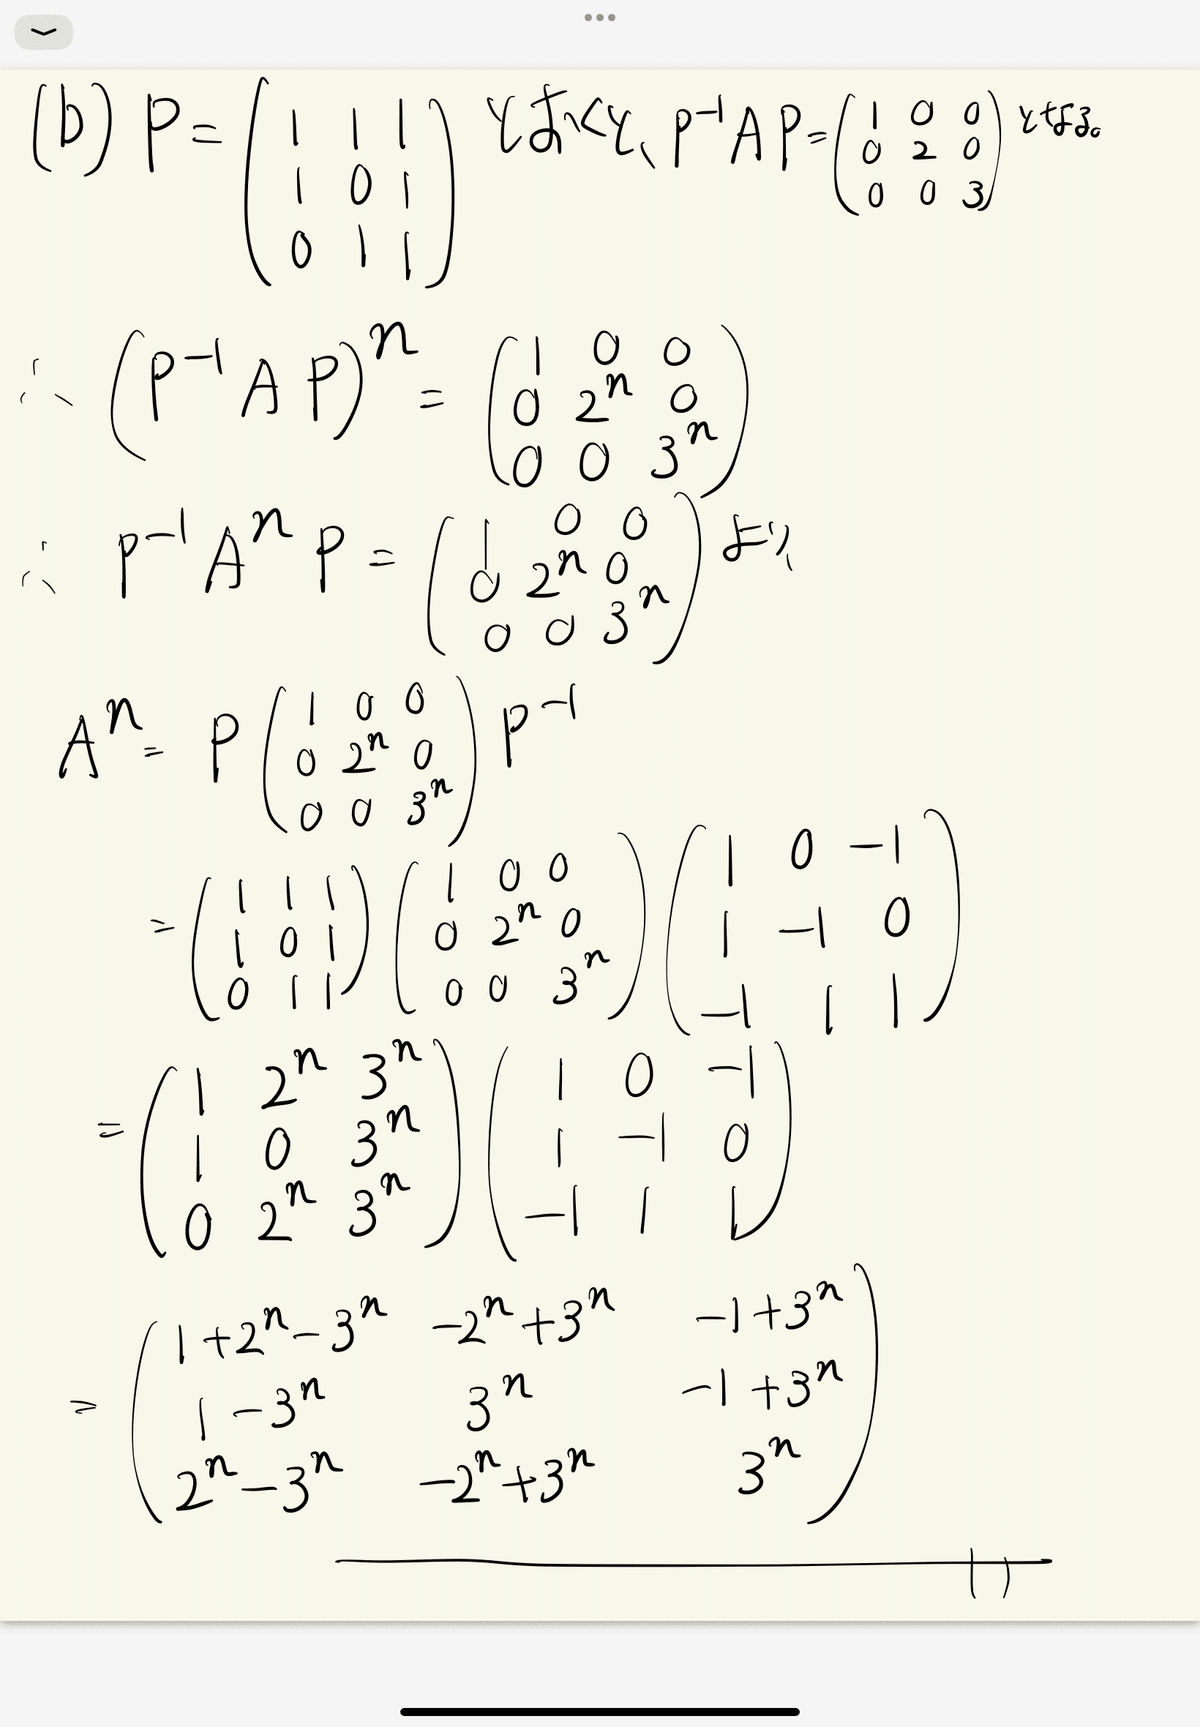 (b) P = \begin{pmatrix} 1 & 1 & 1 \\ 1 & 0 & 1 \\ 0 & 1 & 1 \end{pmatrix} とおくと、P^{-1}AP = \begin{pmatrix} 1 & 0 & 0 \\ 0 & 2 & 0 \\ 0 & 0 & 3 \end{pmatrix} となる。
∴ (P^{-1}AP)^n = \begin{pmatrix} 1 & 0 & 0 \\ 0 & 2^n & 0 \\ 0 & 0 & 3^n \end{pmatrix}
∴ P^{-1}A^nP = \begin{pmatrix} 1 & 0 & 0 \\ 0 & 2^n & 0 \\ 0 & 0 & 3^n \end{pmatrix} より、
A^n = P \begin{pmatrix} 1 & 0 & 0 \\ 0 & 2^n & 0 \\ 0 & 0 & 3^n \end{pmatrix} P^{-1}
= \begin{pmatrix} 1 & 1 & 1 \\ 1 & 0 & 1 \\ 0 & 1 & 1 \end{pmatrix} \begin{pmatrix} 1 & 0 & 0 \\ 0 & 2^n & 0 \\ 0 & 0 & 3^n \end{pmatrix} \begin{pmatrix} 1 & 0 & -1 \\ 1 & -1 & 0 \\ -1 & 1 & 1 \end{pmatrix}
= \begin{pmatrix} 1 & 2^n & 3^n \\ 1 & 0 & 3^n \\ 0 & 2^n & 3^n \end{pmatrix} \begin{pmatrix} 1 & 0 & -1 \\ 1 & -1 & 0 \\ -1 & 1 & 1 \end{pmatrix}
= \begin{pmatrix} 1+2^n-3^n & -2^n+3^n & -1+3^n \\ 1-3^n & 3^n & -1+3^n \\ 2^n-3^n & -2^n+3^n & 3^n \end{pmatrix}